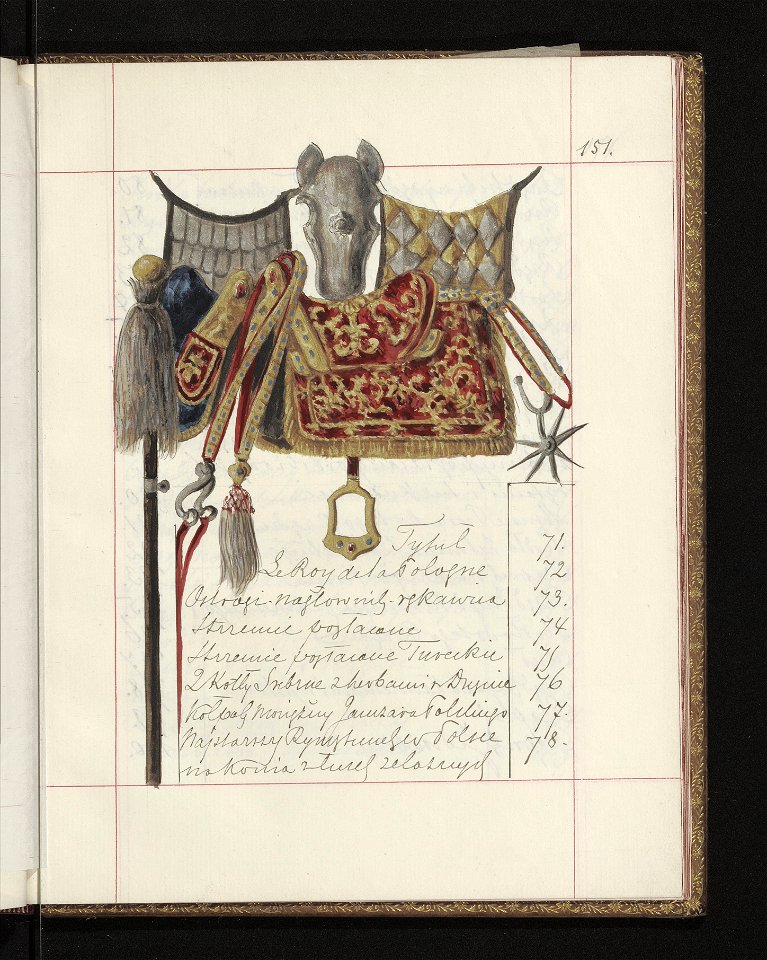 151.
Tytuł 71.
Le Roy de la Pologne 72
Ostrogi - nagłownik - rękawica 73.
Strzemie pozłacane 74
Strzemie pozłacane Tureckie 75
2 Kotły Srebrne z herbami 76
Kołpak mosiężny Janczara Polskiego 77.
Najstarszy w Polsce 78.
na Konia z łusek żelaznych